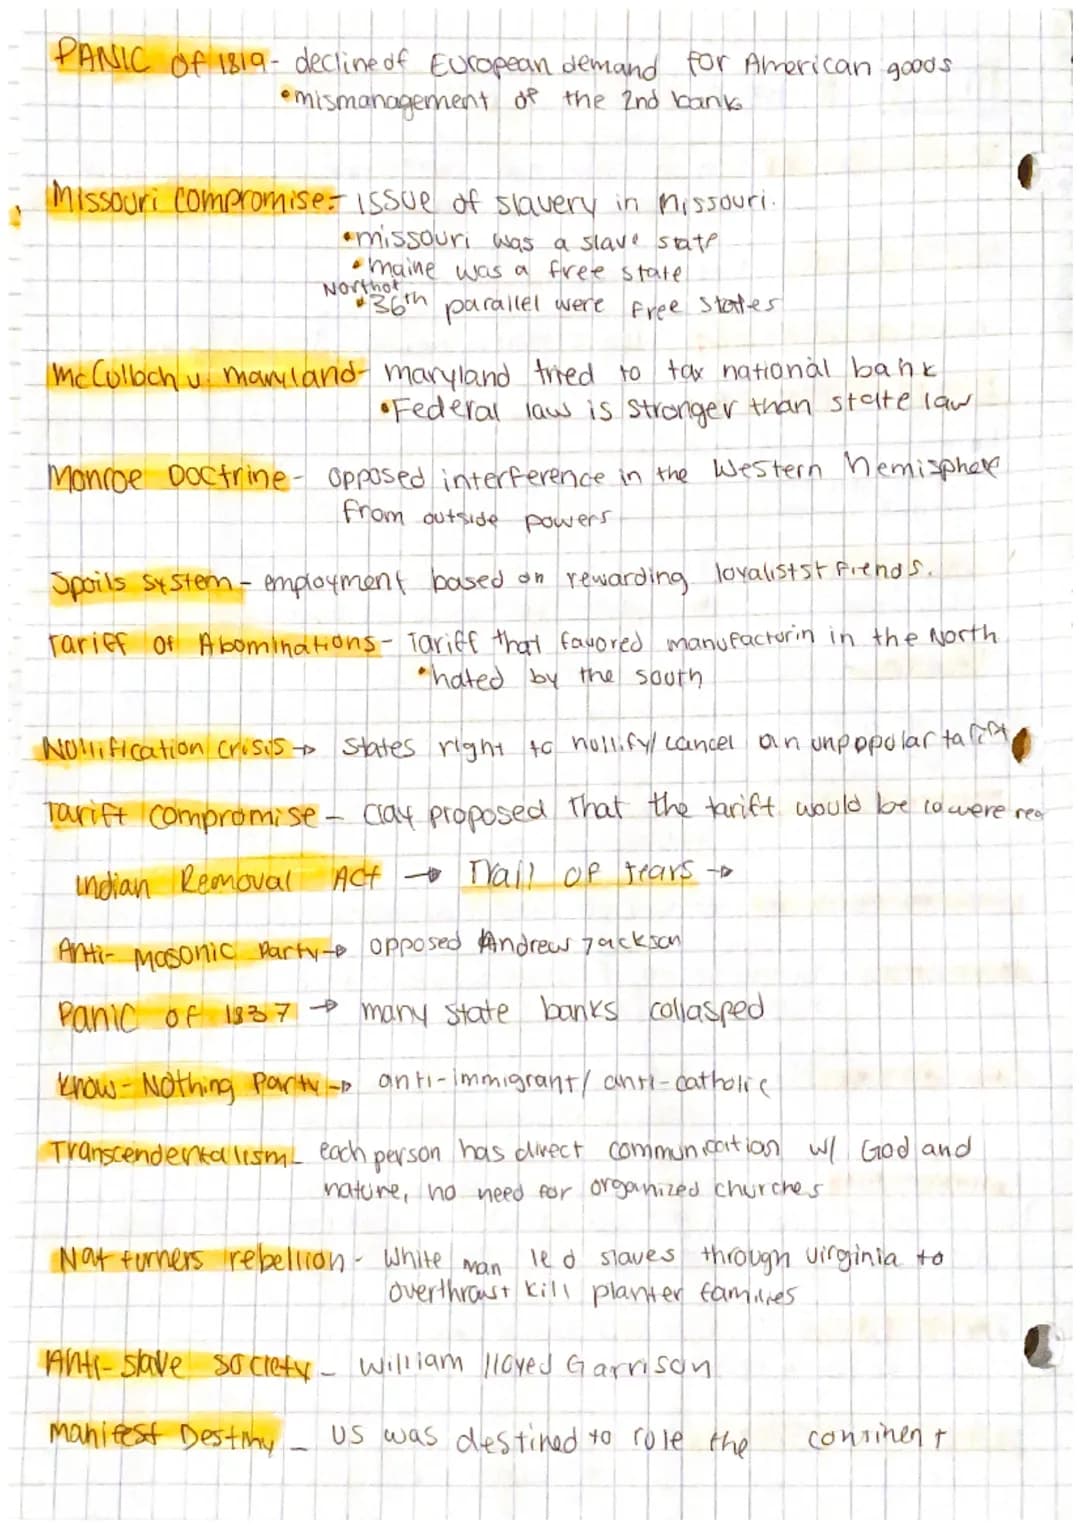 PANIC of 1819- decline of European demand for American goods
•mismanagement of the 2nd bank
Missouri Compromise:- issue of slavery in missouri.
•missouri was a slave state
•maine was a free state
North of
•36th parallel were Free States
McCulloch v. maryland- maryland tried to tax national bank
•Federal law is stronger than state law
Monroe Doctrine- opposed interference in the Western hemisphere
from outside powers
Spoils System- employment based on rewarding loyalists + friends.
Tariff of Abominations- Tariff that favored manufacturin in the North
•hated by the south
Nullification crisis → States right to nullify/cancel an unpopular tariff
Tariff compromise - Clay proposed that the tariff would be lowere red
Indian Removal Act → Trail of tears →
Anti- Masonic Party→ opposed Andrew Jackson
Panic of 1837 → many state banks collasped
Know-Nothing Party→ anti-immigrant/ anti-catholic
Transcendentalism- each person has direct communication w/ God and
nature, no need for organized churches
Nat turners rebellion- White man led slaves through virginia to
overthrow + kill planter families
Anti-slave society- william lloyed Garrison
Manifest Destiny - US was destined to rule the continent